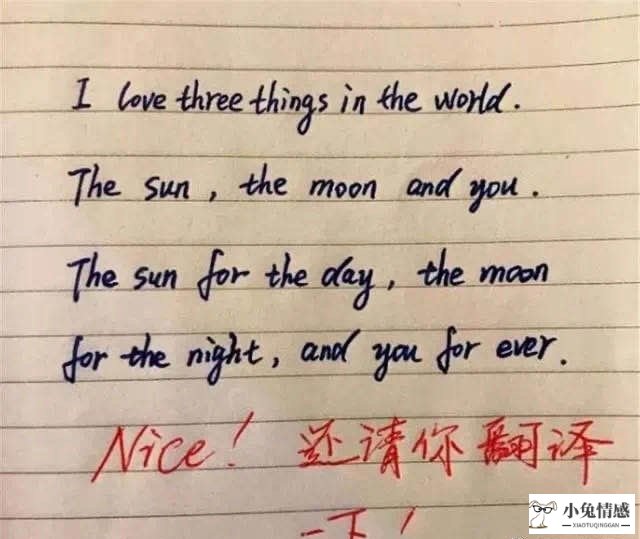 I love three things in the world.
The sun, the moon and you.
The sun for the day, the moon
for the night, and you for ever.
Nice! 还请你翻译
一下!
小兔情感
XIAOTUQINGGAN